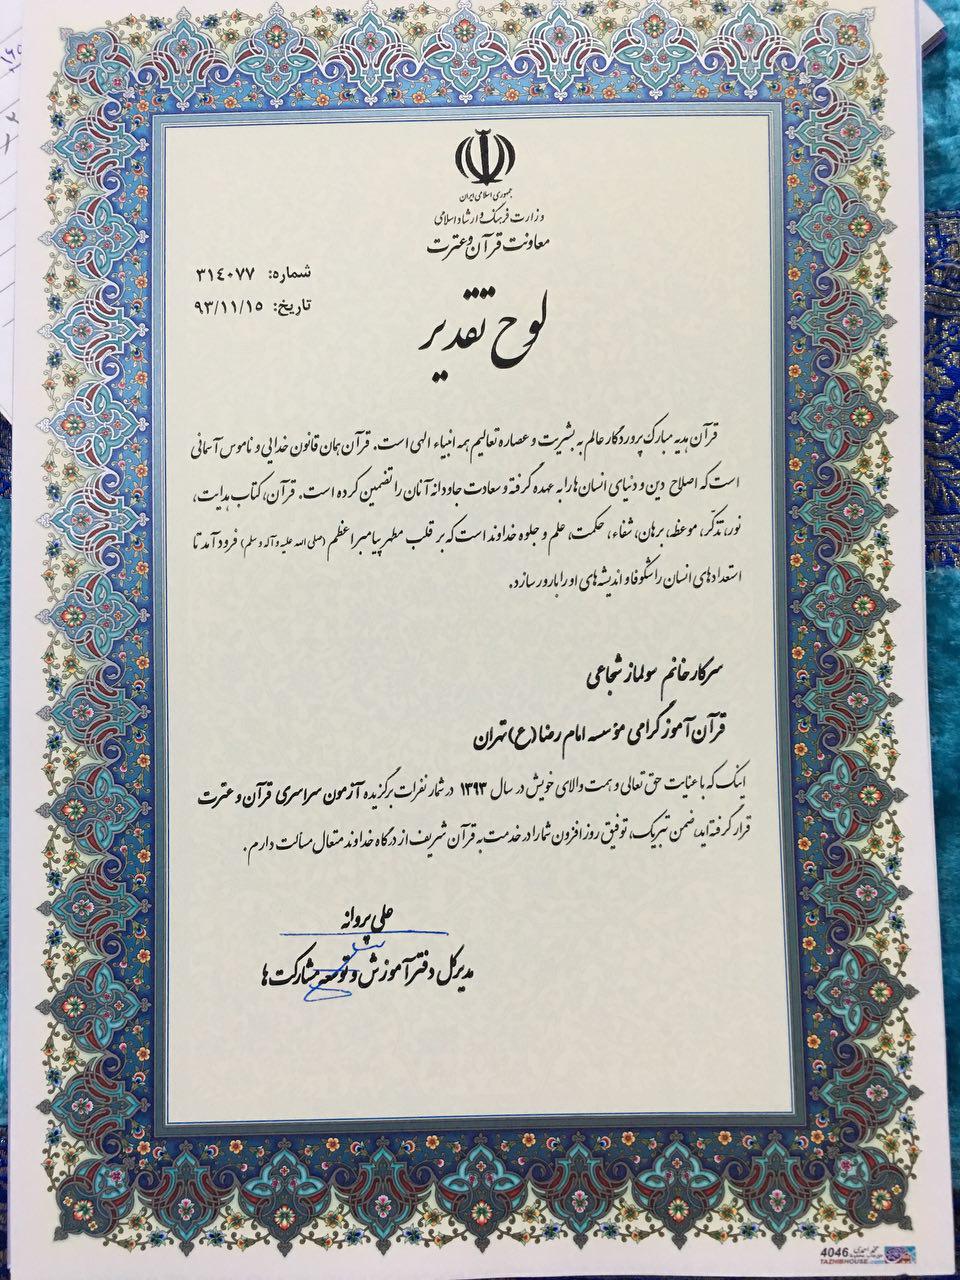 جمهوری اسلامی ایران
وزارت فرهنگ و ارشاد اسلامی
معاونت قرآن و عترت
شماره: ٣١٤٠٧٧
تاریخ: ٩٣/١١/١٥
لوح تقدیر
قرآن هدیه مبارک پروردگار عالم به بشریت و عصاره تعالیم همه انبیاء الهی است. قرآن همان قانون خدایی و ناموس آسمانی
است که اصلاح دین و دنیای انسان ها را به عهده گرفته و سعادت جاودانه آنان را تضمین کرده است. قرآن، کتاب هدایت،
نور، تذکّر، موعظه، برهان، شفاء، حکمت، علم و جلوه خداوند است که بر قلب مطهر پیامبر اعظم (صلی الله علیه و آله و سلم) فرود آمد تا
استعدادهای انسان را شکوفا و اندیشه های او را بارور سازد.
سرکار خانم سولماز شجاعی
قرآن آموز گرامی مؤسسه امام رضا (ع) تهران
اینک که با عنایت حق تعالی و همت والای خویش در سال ۱۳۹۳ در شمار نفرات برگزیده آزمون سراسری قرآن و عترت
قرار گرفته اید، ضمن تبریک، توفیق روز افزون شما را در خدمت به قرآن شریف از درگاه خداوند متعال مسألت دارم.
علی پروانه
مدیرکل دفتر آموزش و توسعه مشارکت ها
4046
TAZHIBHOUSE.com